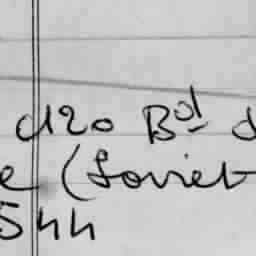 d120 Bd
e (Soviet
544